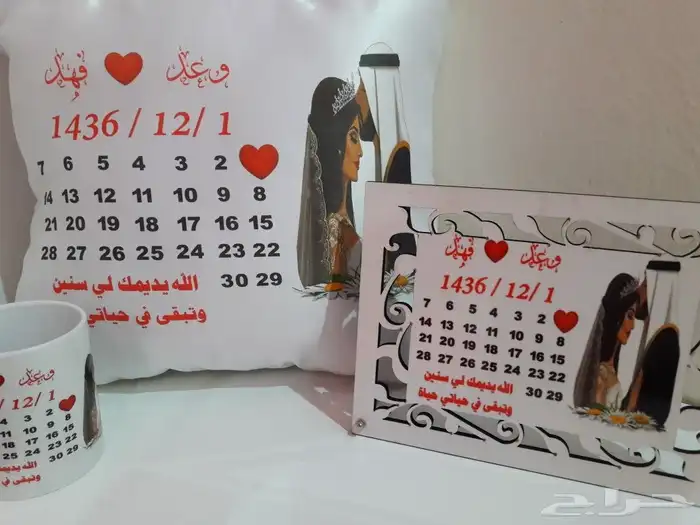 وعد ❤ فهد
1436 / 12 / 1
7 6 5 4 3 2 ❤
14 13 12 11 10 9 8
21 20 19 18 17 16 15
28 27 26 25 24 23 22
30 29
الله يديمك لي سنين
وتبقى في حياتي
وعد ❤ فهد
1436 / 12 / 1
7 6 5 4 3 2 ❤
14 13 12 11 10 9 8
21 20 19 18 17 16 15
28 27 26 25 24 23 22
30 29
الله يديمك لي سنين
وتبقى في حياتي حياة
وعد
/ 12 / 1
4 3 2 ❤
11 10 9 8
18 17 16 15
25 24 23 22
30 29
الله يديمك لي سنين
وتبقى في
حراج